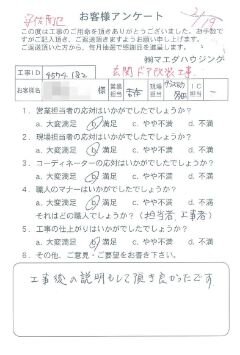 お客様アンケート
この度は工事のご用命を頂きありがとうございました。お手数で
すがご記入頂き、ご返送頂きますようお願い申し上げます。
ご返送頂いた方から、毎月抽選で感謝品を進呈いたします。
㈱マエダハウジング
工事ID
玄関ドア改装工事
お客様名 様 営業担当 工事担当
1. 営業担当者の応対はいかがでしたでしょうか？
a. 大変満足 b. 満足 c. やや不満 d. 不満
2. 現場担当者の応対はいかがでしたでしょうか？
a. 大変満足 b. 満足 c. やや不満 d. 不満
3. コーディネーターの応対はいかがでしたでしょうか？
a. 大変満足 b. 満足 c. やや不満 d. 不満
4. 職人のマナーはいかがでしたでしょうか？
a. 大変満足 b. 満足 c. やや不満 d. 不満
それはどの職人でしょうか？(担当者,工事者)
5. 工事の仕上がりはいかがでしたでしょうか？
a. 大変満足 b. 満足 c. やや不満 d. 不満
8. その他、ご意見・ご要望をお書き下さい。
工事後の説明もして頂き良かったです